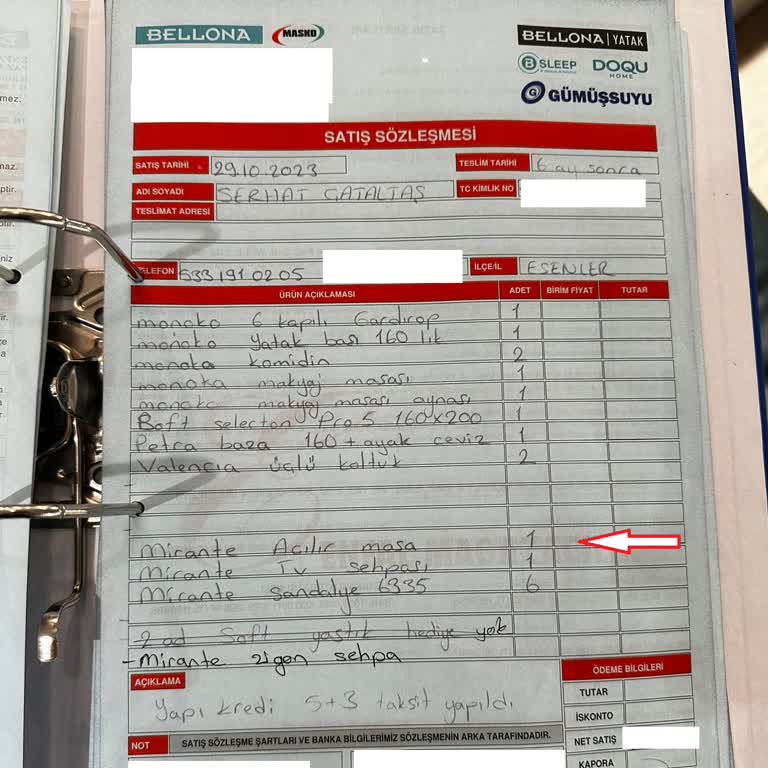 BELLONA MASKO BELLONA | YATAK
B SLEEP DOQU HOME
G GÜMÜŞSUYU
SATIŞ SÖZLEŞMESİ
SATIŞ TARİHİ 29.10.2023 TESLİM TARİHİ 6 ay sonra
ADI SOYADI SERHAT GATALTAŞ TC KİMLİK NO
TESLİMAT ADRESİ
TELEFON 533 191 02 05 İLÇE/İL ESENLER
ÜRÜN AÇIKLAMASI ADET BİRİM FİYAT TUTAR
monoko 6 kapılı Gardırop 1
monoko Yatak başı 160 lık 1
monoka komidin 2
monoka makyaj masası 1
monoko makyaj masası aynası 1
Boft selecton Pro 5 160x200 1
Petra baza 160 + ayak ceviz 1
Valencia üçlü koltuk 2
Mirante Açılır masa 1
Mirante Tv sehpası 1
Mirante sandalye 6335 6
-2 ad Soft yastık hediye yok
-Mirante zigon sehpa
AÇIKLAMA
Yapı kredi 5+3 taksit yapıldı
ÖDEME BİLGİLERİ
TUTAR
İSKONTO
NET SATIŞ
KAPORA
NOT SATIŞ SÖZLEŞME ŞARTLARI VE BANKA BİLGİLERİMİZ SÖZLEŞMENİN ARKA TARAFINDADIR.